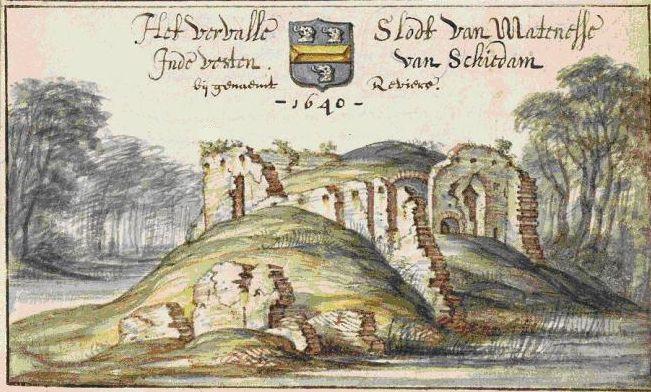 Het vervalle Slodt van Matenesse
Inde vesten. van Schiedam
bij genaemt Reviere.
- 1640 -